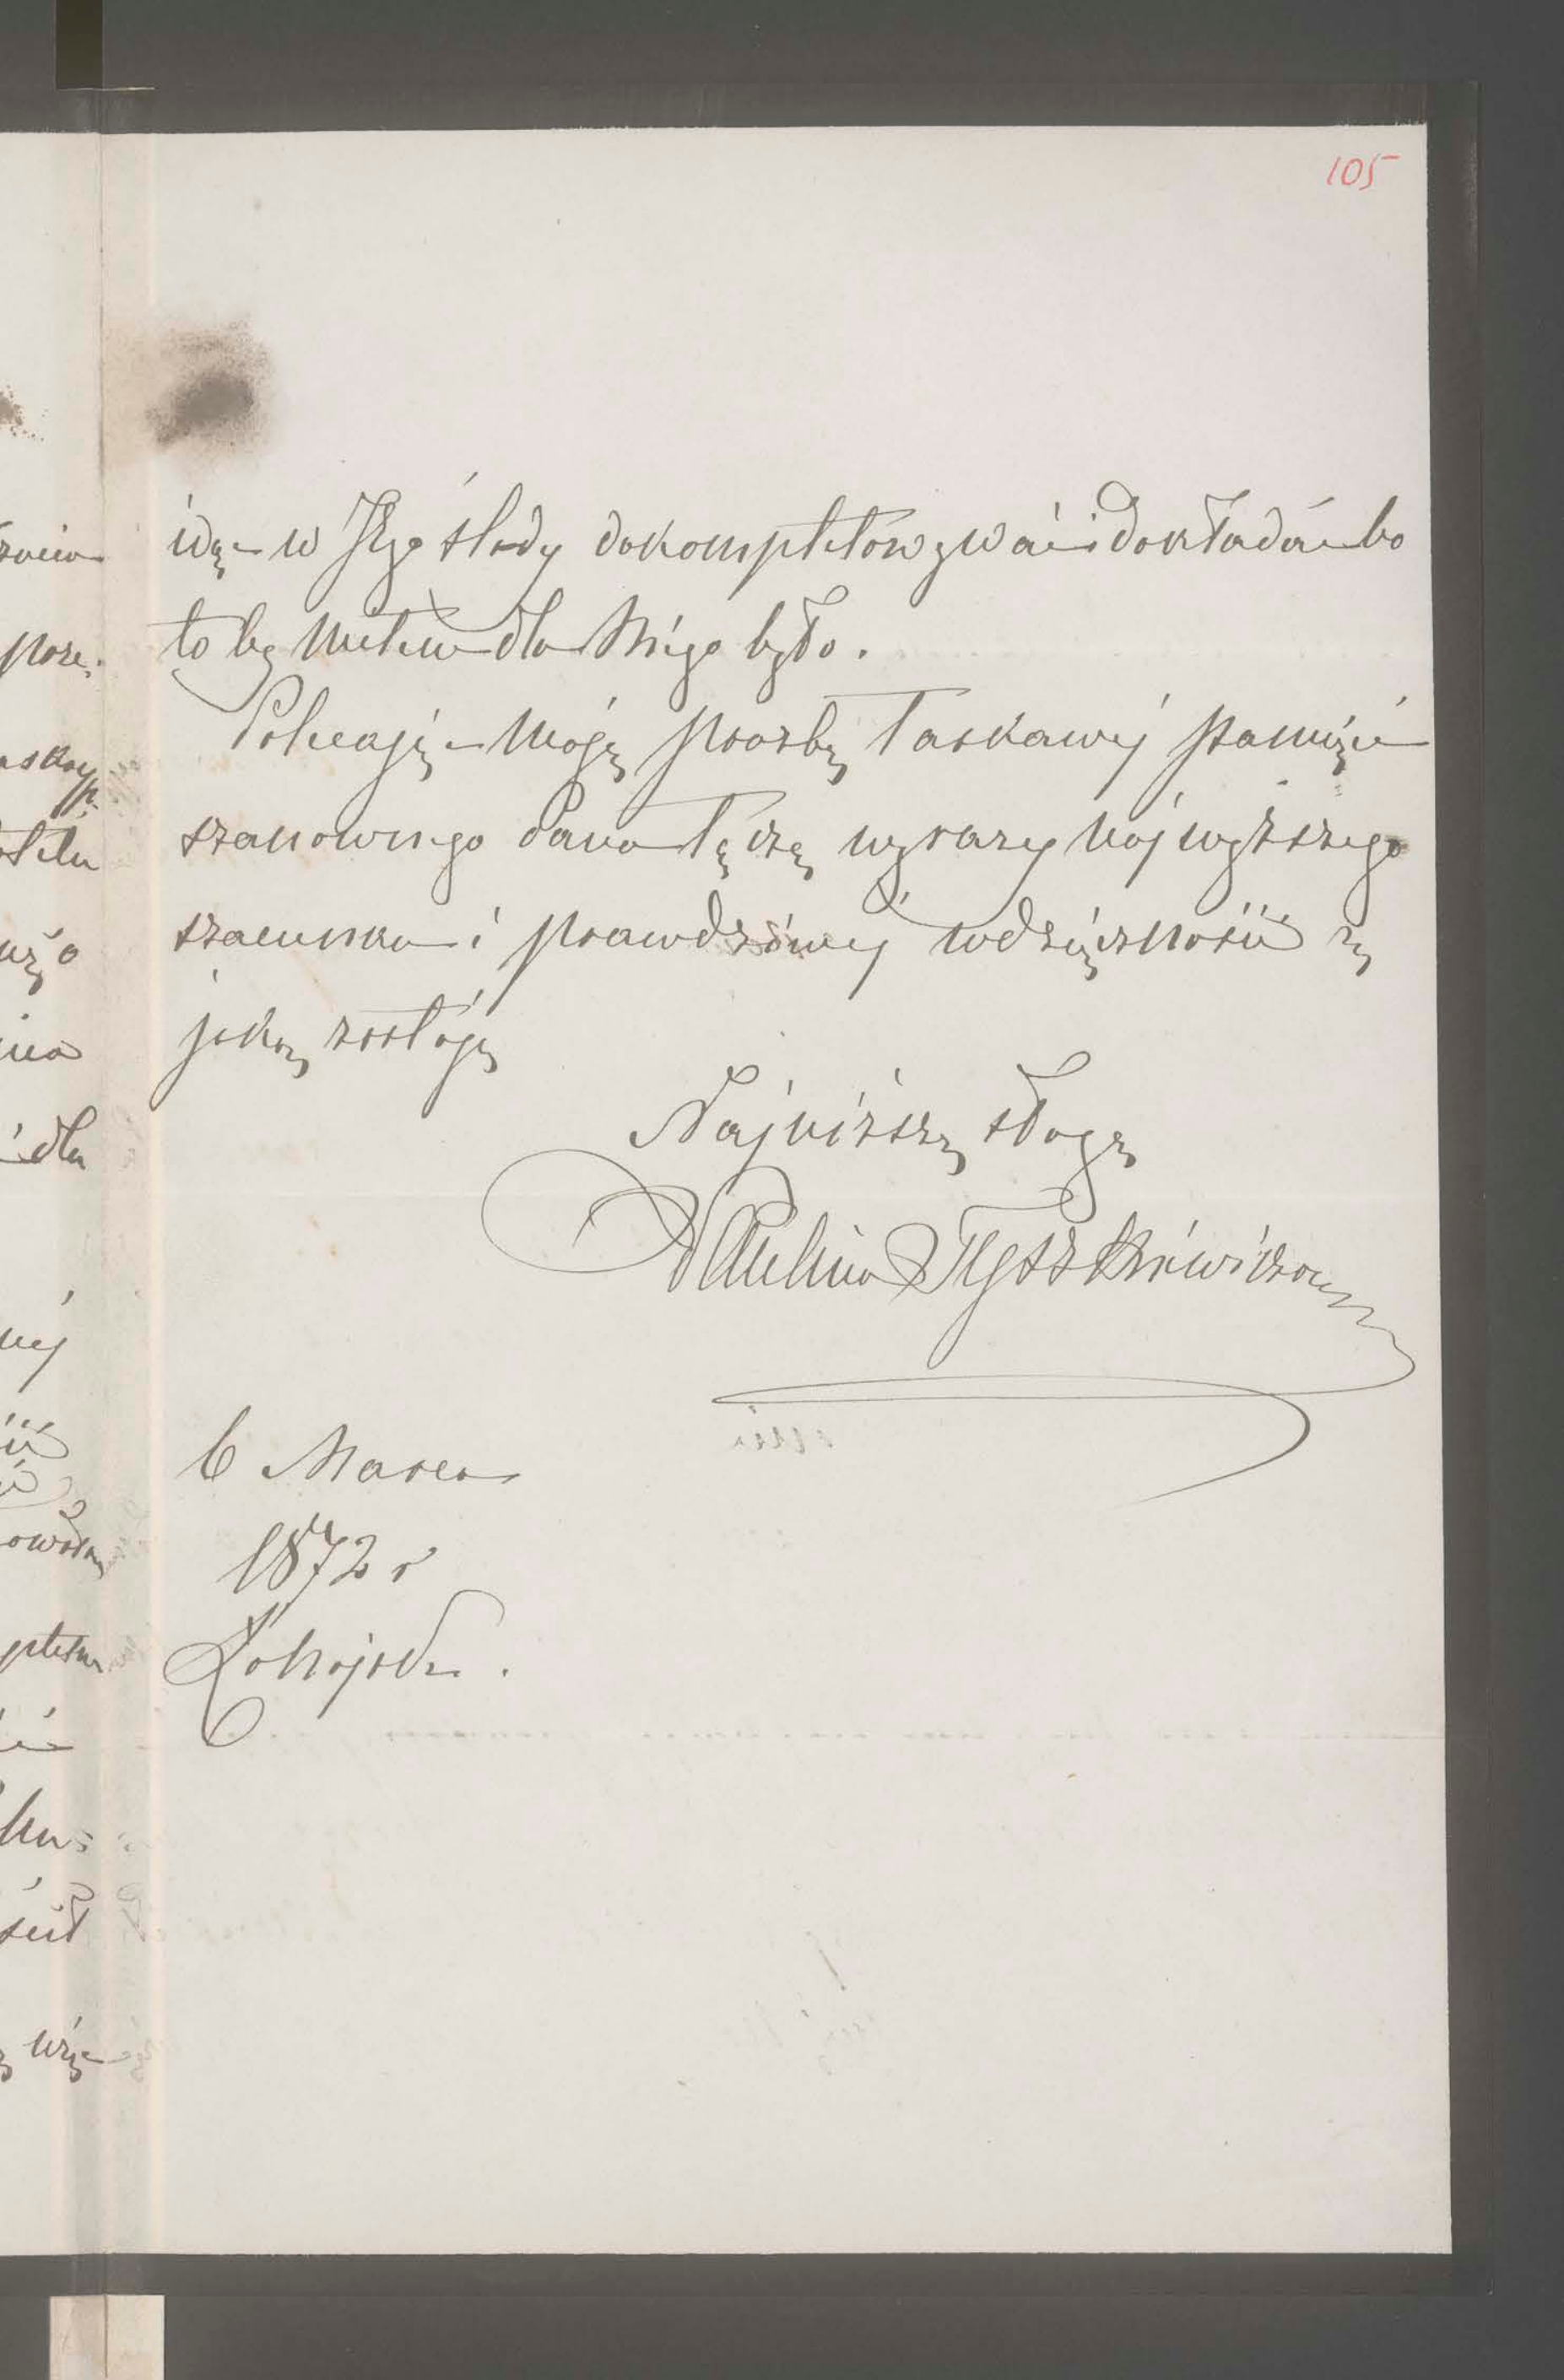 105
idąc w Jego ślady dokompletowywać i dokładać bo
to by miłem dla Niego było.
Polecając moją prośbę łaskawéj pamięci
szanownego Pana łączę wyrazy najwyższego
szacunku i prawdziwéj wdzięczności z
jaką zostaję
Najniższą sługą
Paulina Tyszkiewiczowa
6 Marca
1872 r
Łohojsk.